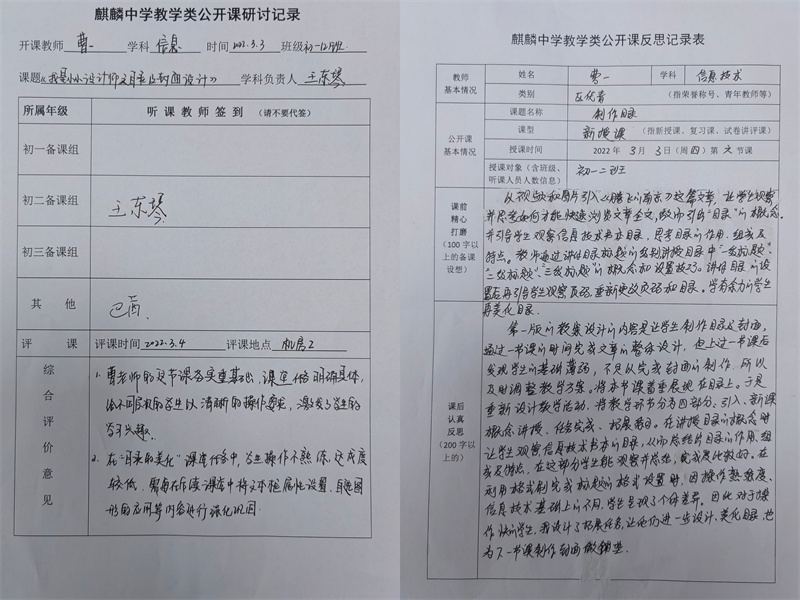 麒麟中学教学类公开课研讨记录
开课教师 曹一 学科 信息 时间 2022.3.3 班级 初一12班
课题《我是小小设计师之目录及封面设计》 学科负责人 王东琴
所属年级 听课教师签到 (请不要代签)
初一备课组
初二备课组 王东琴
初三备课组
其他
评课 评课时间 2022.3.4 评课地点 机房2
综合评价意见
1. 曹老师的这节课务实重基础,课堂任务明确具体,
给不同层次的学生以清晰的操作要求,激发了学生的
学习兴趣。
2. 在“目录的美化”课堂任务中,学生操作不熟练,完成度
较低,需要在后续课堂中将文本框属性设置,自选图
形的应用等内容进行强化巩固。
麒麟中学教学类公开课反思记录表
教师基本情况 姓名 曹一 学科 信息技术
类别 区优青 (指荣誉称号、青年教师等)
公开课基本情况 课题名称 制作目录
课型 新授课 (指新授课、复习课、试卷讲评课)
授课时间 2022年 3月 3日(周四)第 节课
授课对象(含班级、听课人员人数信息) 初一二班
课前精心打磨(100字以上的备课设想)
从视频和图片引入《腾飞的南京》这篇文章,让学生观察
并思考如何才能快速浏览文章全文,从而引出“目录”的概念。
并引导学生观察信息技术书本目录,思考目录的作用、组成及
特点。教师通过讲解目录标题的级别讲授目录中“一级标题”、
“二级标题”、“三级标题”的概念和设置技巧。讲解目录的设
置后再引导学生观察页码,重新更改页码和目录。学有余力的学生
再美化目录。
课后认真反思(200字以上的)
第一版的教案设计的内容是让学生制作目录及封面,
通过一节课的时间完成文章的整体设计,但上过一节课后
发现学生的基础薄弱,不足以完成封面的制作,所以
及时调整教学方案。将本节课着重展现在目录上。于是
重新设计教学活动,将教学环节分为四部分:引入、新课
概念讲授、任务完成、拓展题目。在讲授目录的概念时
让学生观察信息技术书本的目录,从而总结出目录的作用、组
成及特点,在这部分学生能观察并总结,完成度比较好。在
利用格式刷完成标题的格式设置时,因操作熟练度、
信息技术基础上的不同,学生呈现了个体差异。因此对于操
作快的学生,我设计了拓展任务,让他们进一步设计、美化目录,也
为下一节课制作封面做铺垫。